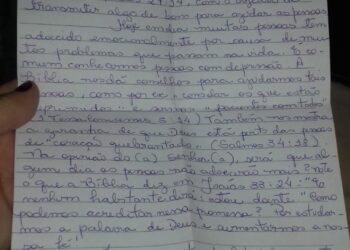 transmitir algo de bom para ajudar as pessoas
Hoje em dia muitas pessoas tem
adoecido emocionalmente por causa de mui
tos problemas que passam na vida. E co
mum conhecermos pessoas com depressão. A
Bíblia nos dá conselhos para ajudarmos tais
pessoas, como por ex, consolar os que estão
"deprimidos" e sermos "pacientes com todos"
(1 Tessalonicenses 5:14) Também nos mostra
a garantia de que Deus está perto das pessoas
de "coração quebrantado" (Salmos 34:18)
Na opinião do (a) senhor(a), será que al
gum dia as pessoas não adoecerão mais? Note
o que a Bíblia diz em Isaías 33:24: "E
nenhum habitante dirá: estou doente" Como
podemos acreditar nessa promessa? Por estudar
mos a palavra de Deus e aumentarmos a nos
sa fé"